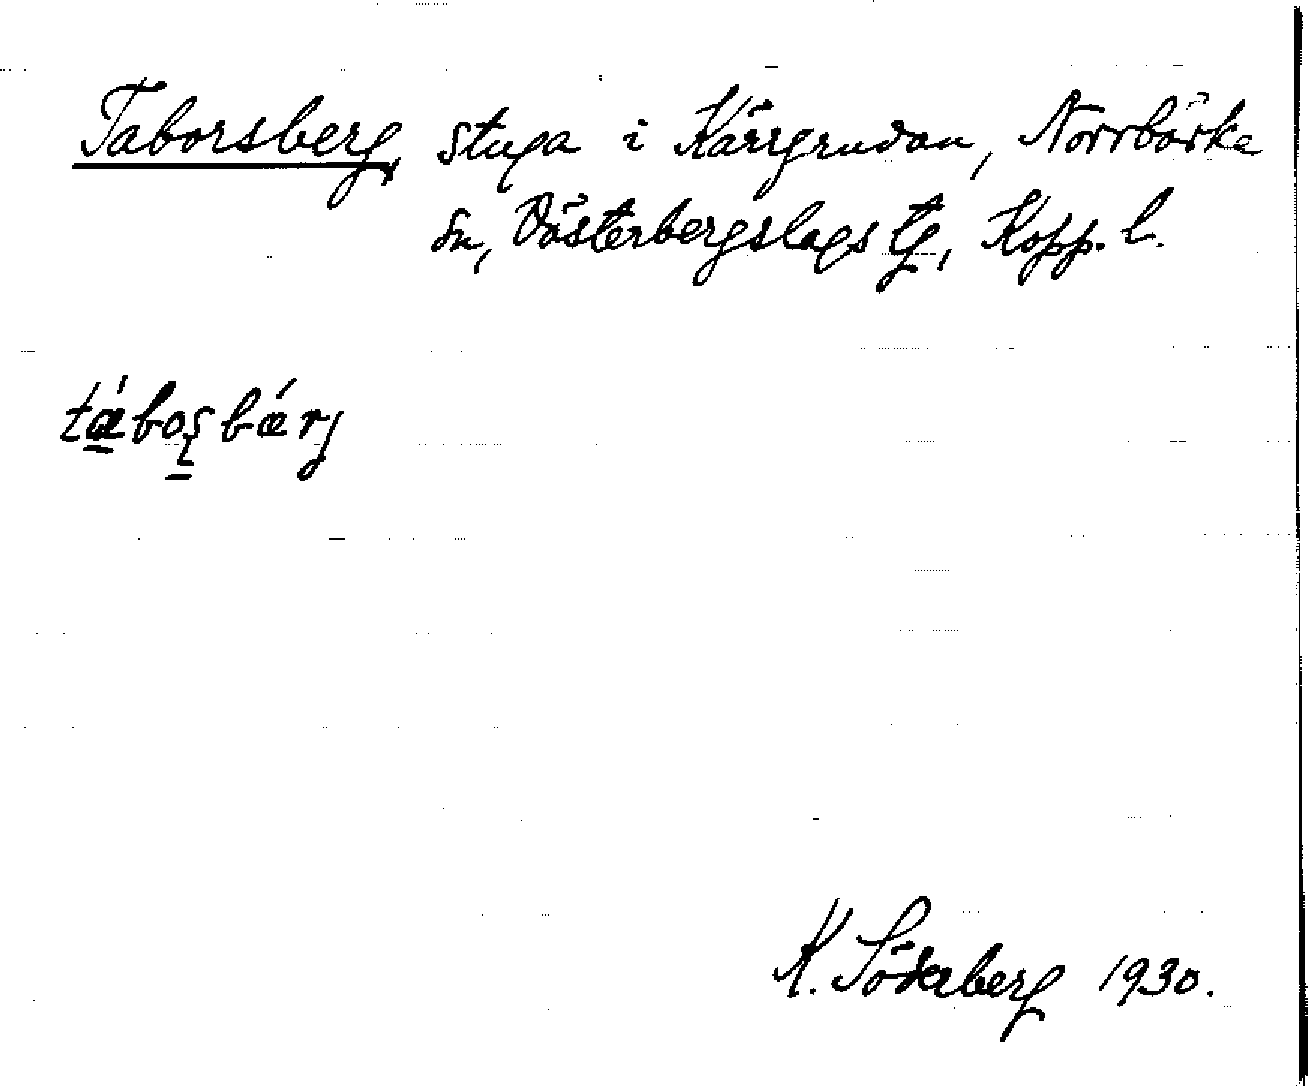 Taborsberg, stuga i Kärrgruvan, Norrbärke
sn, Västerbergslags tg, Kopp. l.
tábos̨bárj
K. Söderberg 1930.